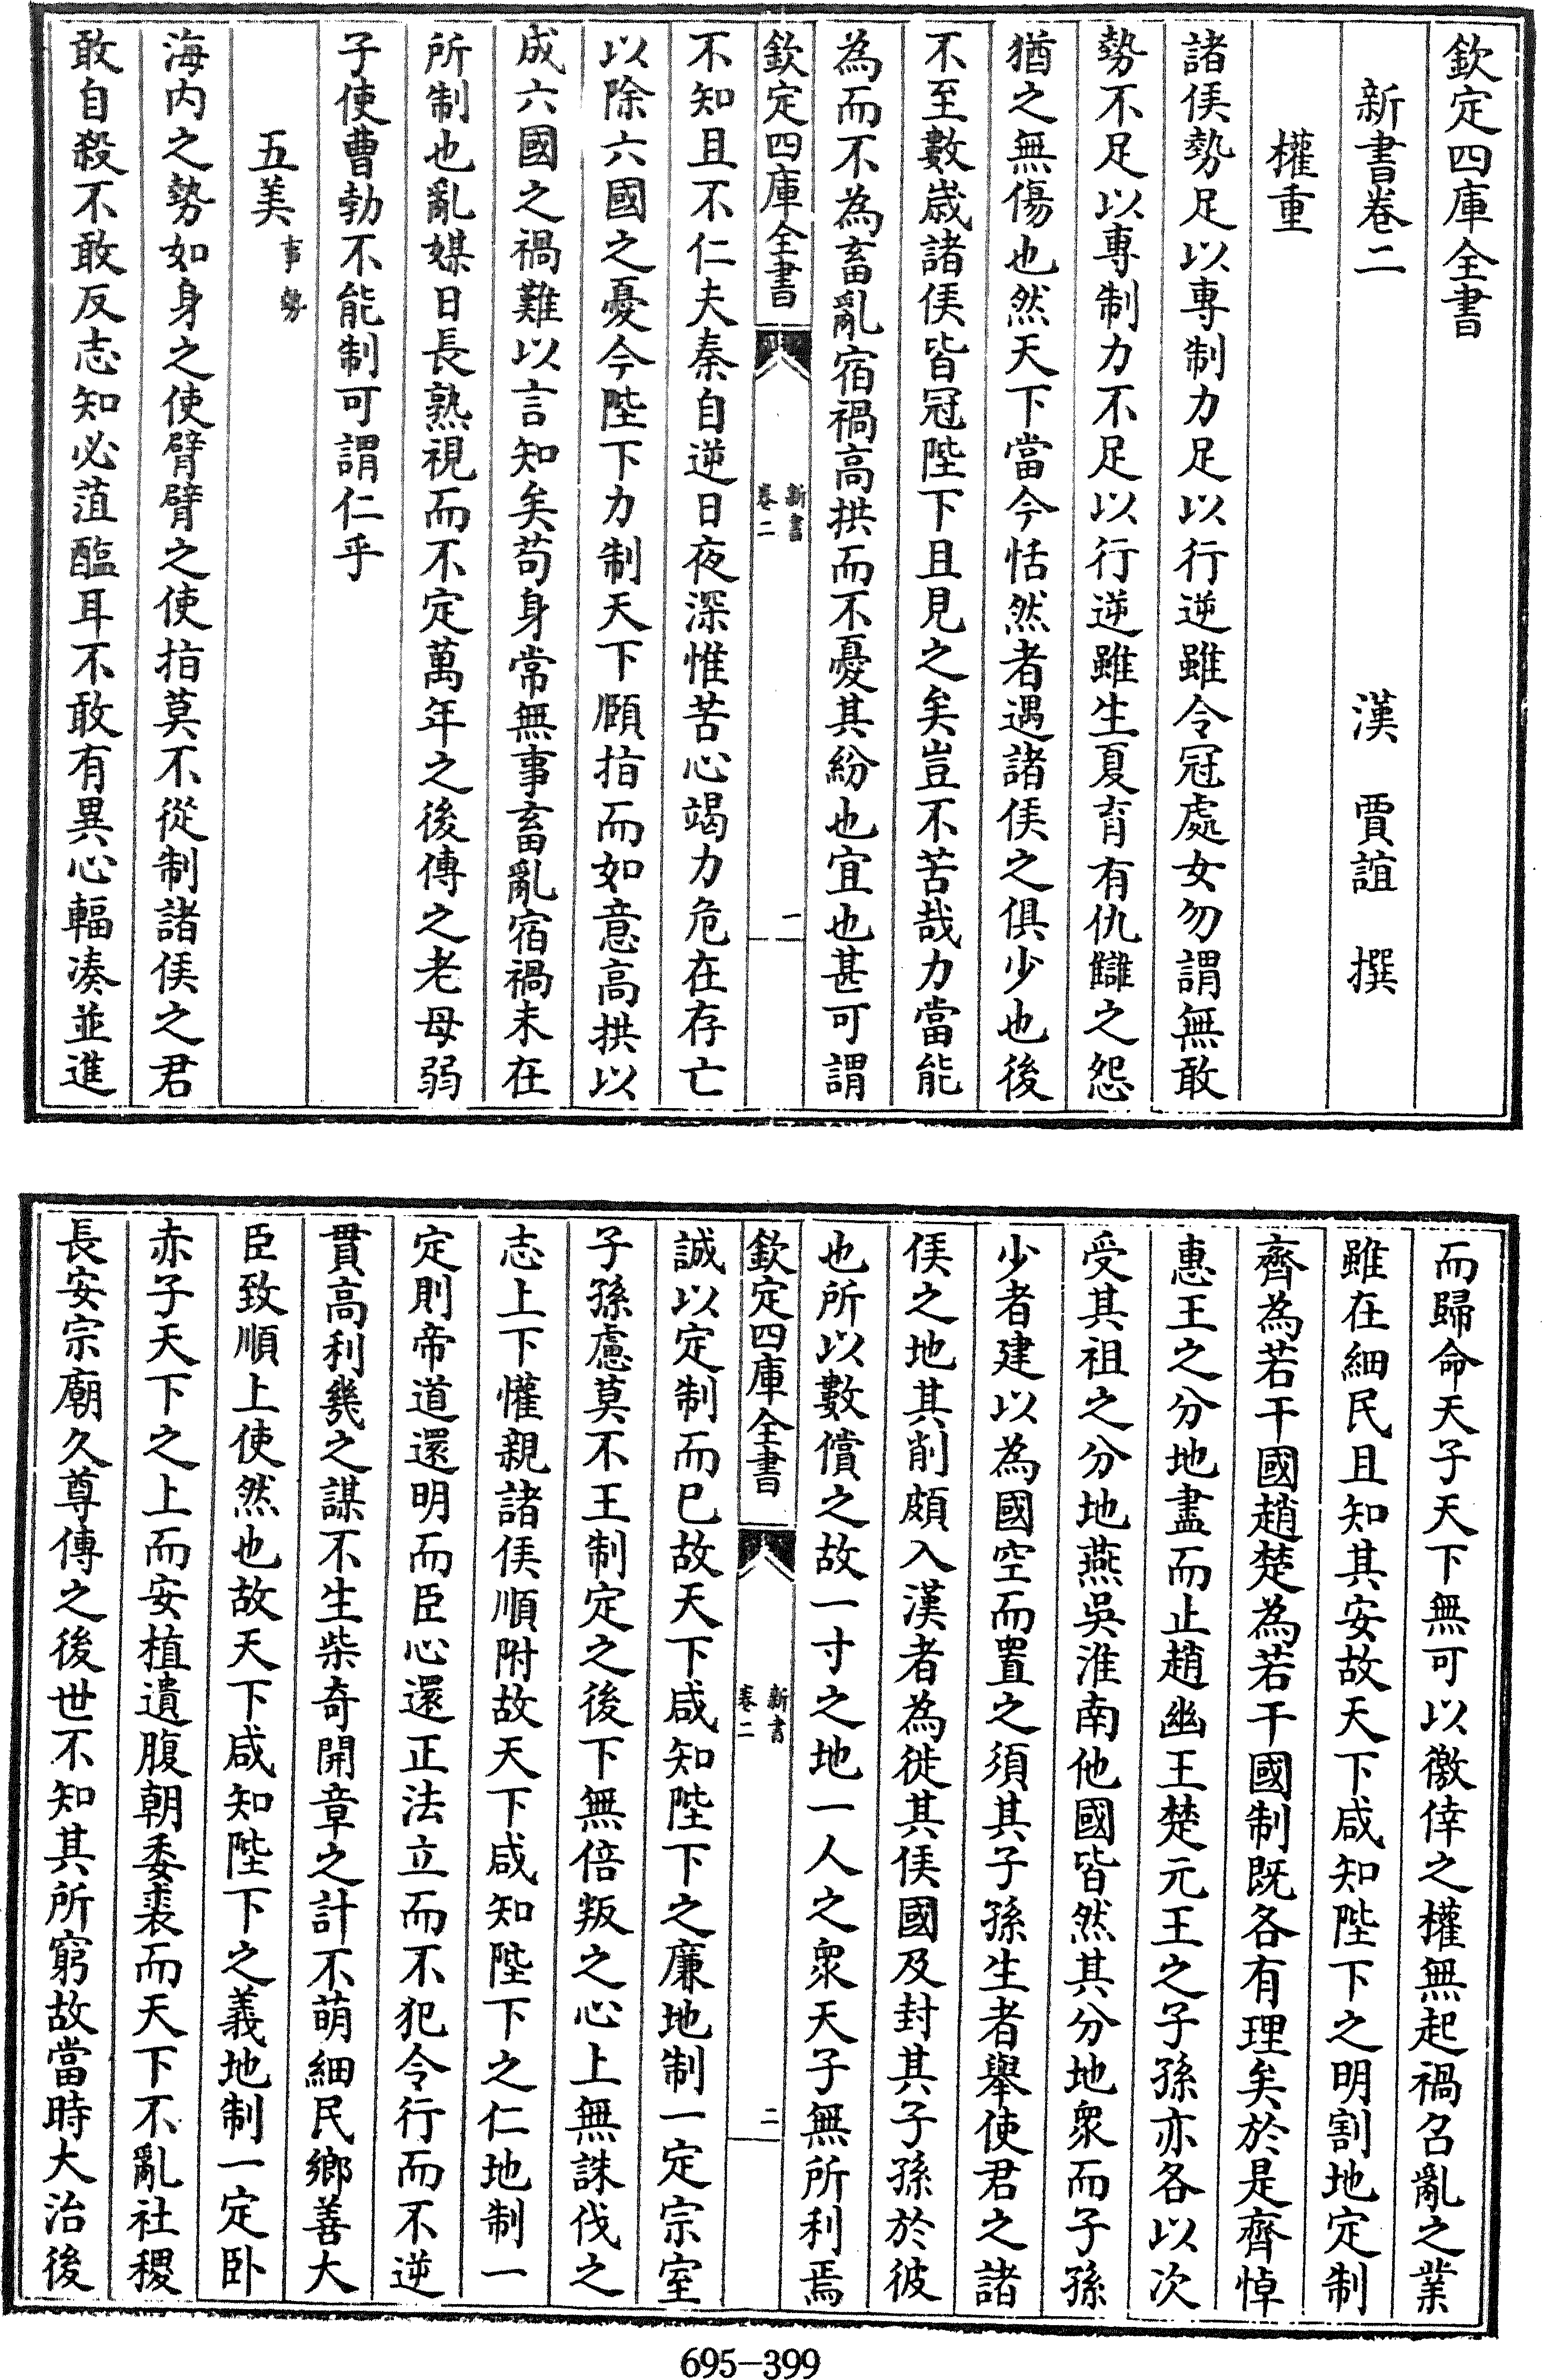 欽定四庫全書
新書卷二　漢　賈誼　撰
權重
諸侯勢足以專制力足以行逆雖令冠處女勿謂無敢
勢不足以專制力不足以行逆雖生夏育有仇讎之怨
猶之無傷也然天下當今恬然者遇諸侯之俱少也後
不至數歲諸侯皆冠陛下且見之矣豈不苦哉力當能
為而不為畜亂宿禍高拱而不憂其紛也宜也甚可謂
欽定四庫全書
新書
卷二
一
不知且不仁夫秦自逆日夜深惟苦心竭力危在存亡
以除六國之憂今陛下力制天下頤指而如意高拱以
成六國之禍難以言知矣苟身常無事畜亂宿禍末在
所制也亂媒日長熟視而不定萬年之後傳之老母弱
子使曹勃不能制可謂仁乎
五美事勢
海内之勢如身之使臂臂之使指莫不從制諸侯之君
敢自殺不敢反志知必菹醢耳不敢有異心輻湊並進
而歸命天子天下無可以徼倖之權無起禍召亂之業
雖在細民且知其安故天下咸知陛下之明割地定制
齊為若干國趙楚為若干國制既各有理矣於是齊悼
惠王之分地盡而止趙幽王楚元王之子孫亦各以次
受其祖之分地燕吳淮南他國皆然其分地衆而子孫
少者建以為國空而置之須其子孫生者舉使君之諸
侯之地其削頗入漢者為徙其侯國及封其子孫於彼
也所以數償之故一寸之地一人之衆天子無所利焉
欽定四庫全書
新書
卷二
二
誠以定制而已故天下咸知陛下之廉地制一定宗室
子孫慮莫不王制定之後下無倍叛之心上無誅伐之
志上下懽親諸侯順附故天下咸知陛下之仁地制一
定則帝道還明而臣心還正法立而不犯令行而不逆
貫高利幾之謀不生柴奇開章之計不萌細民鄉善大
臣致順上使然也故天下咸知陛下之義地制一定卧
赤子天下之上而安植遺腹朝委裘而天下不亂社稷
長安宗廟久尊傳之後世不知其所窮故當時大治後
695-399